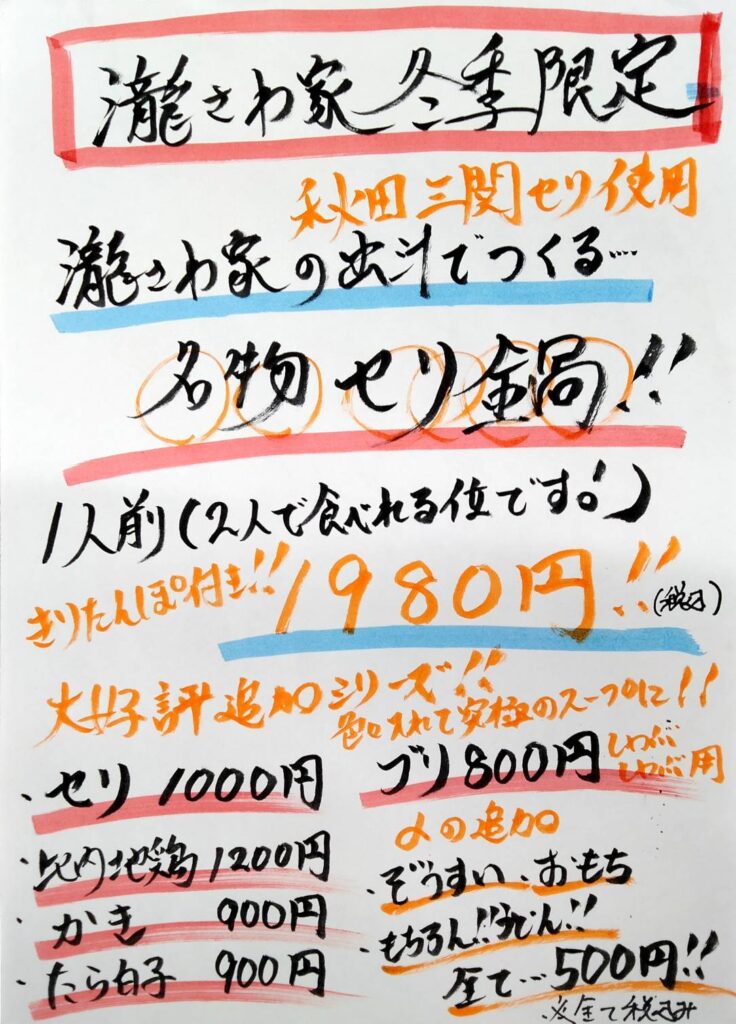 瀧さわ家 冬季限定
秋田三関セリ使用
瀧さわ家の出汁でつくる…
名物 セリ鍋!!
1人前(2人で食べれる位です!)
きりたんぽ付き!! 1980円!! (税込)
大好評追加シリーズ!!
色々入れて究極のスープに!!
・セリ 1000円
・比内地鶏 1200円
・かき 900円
・たら白子 900円
ブリ 800円 しゃぶしゃぶ用
〆の追加
・ぞうすい・おもち
・もちろん!!うどん!!
全て…500円!!
※全て税込み